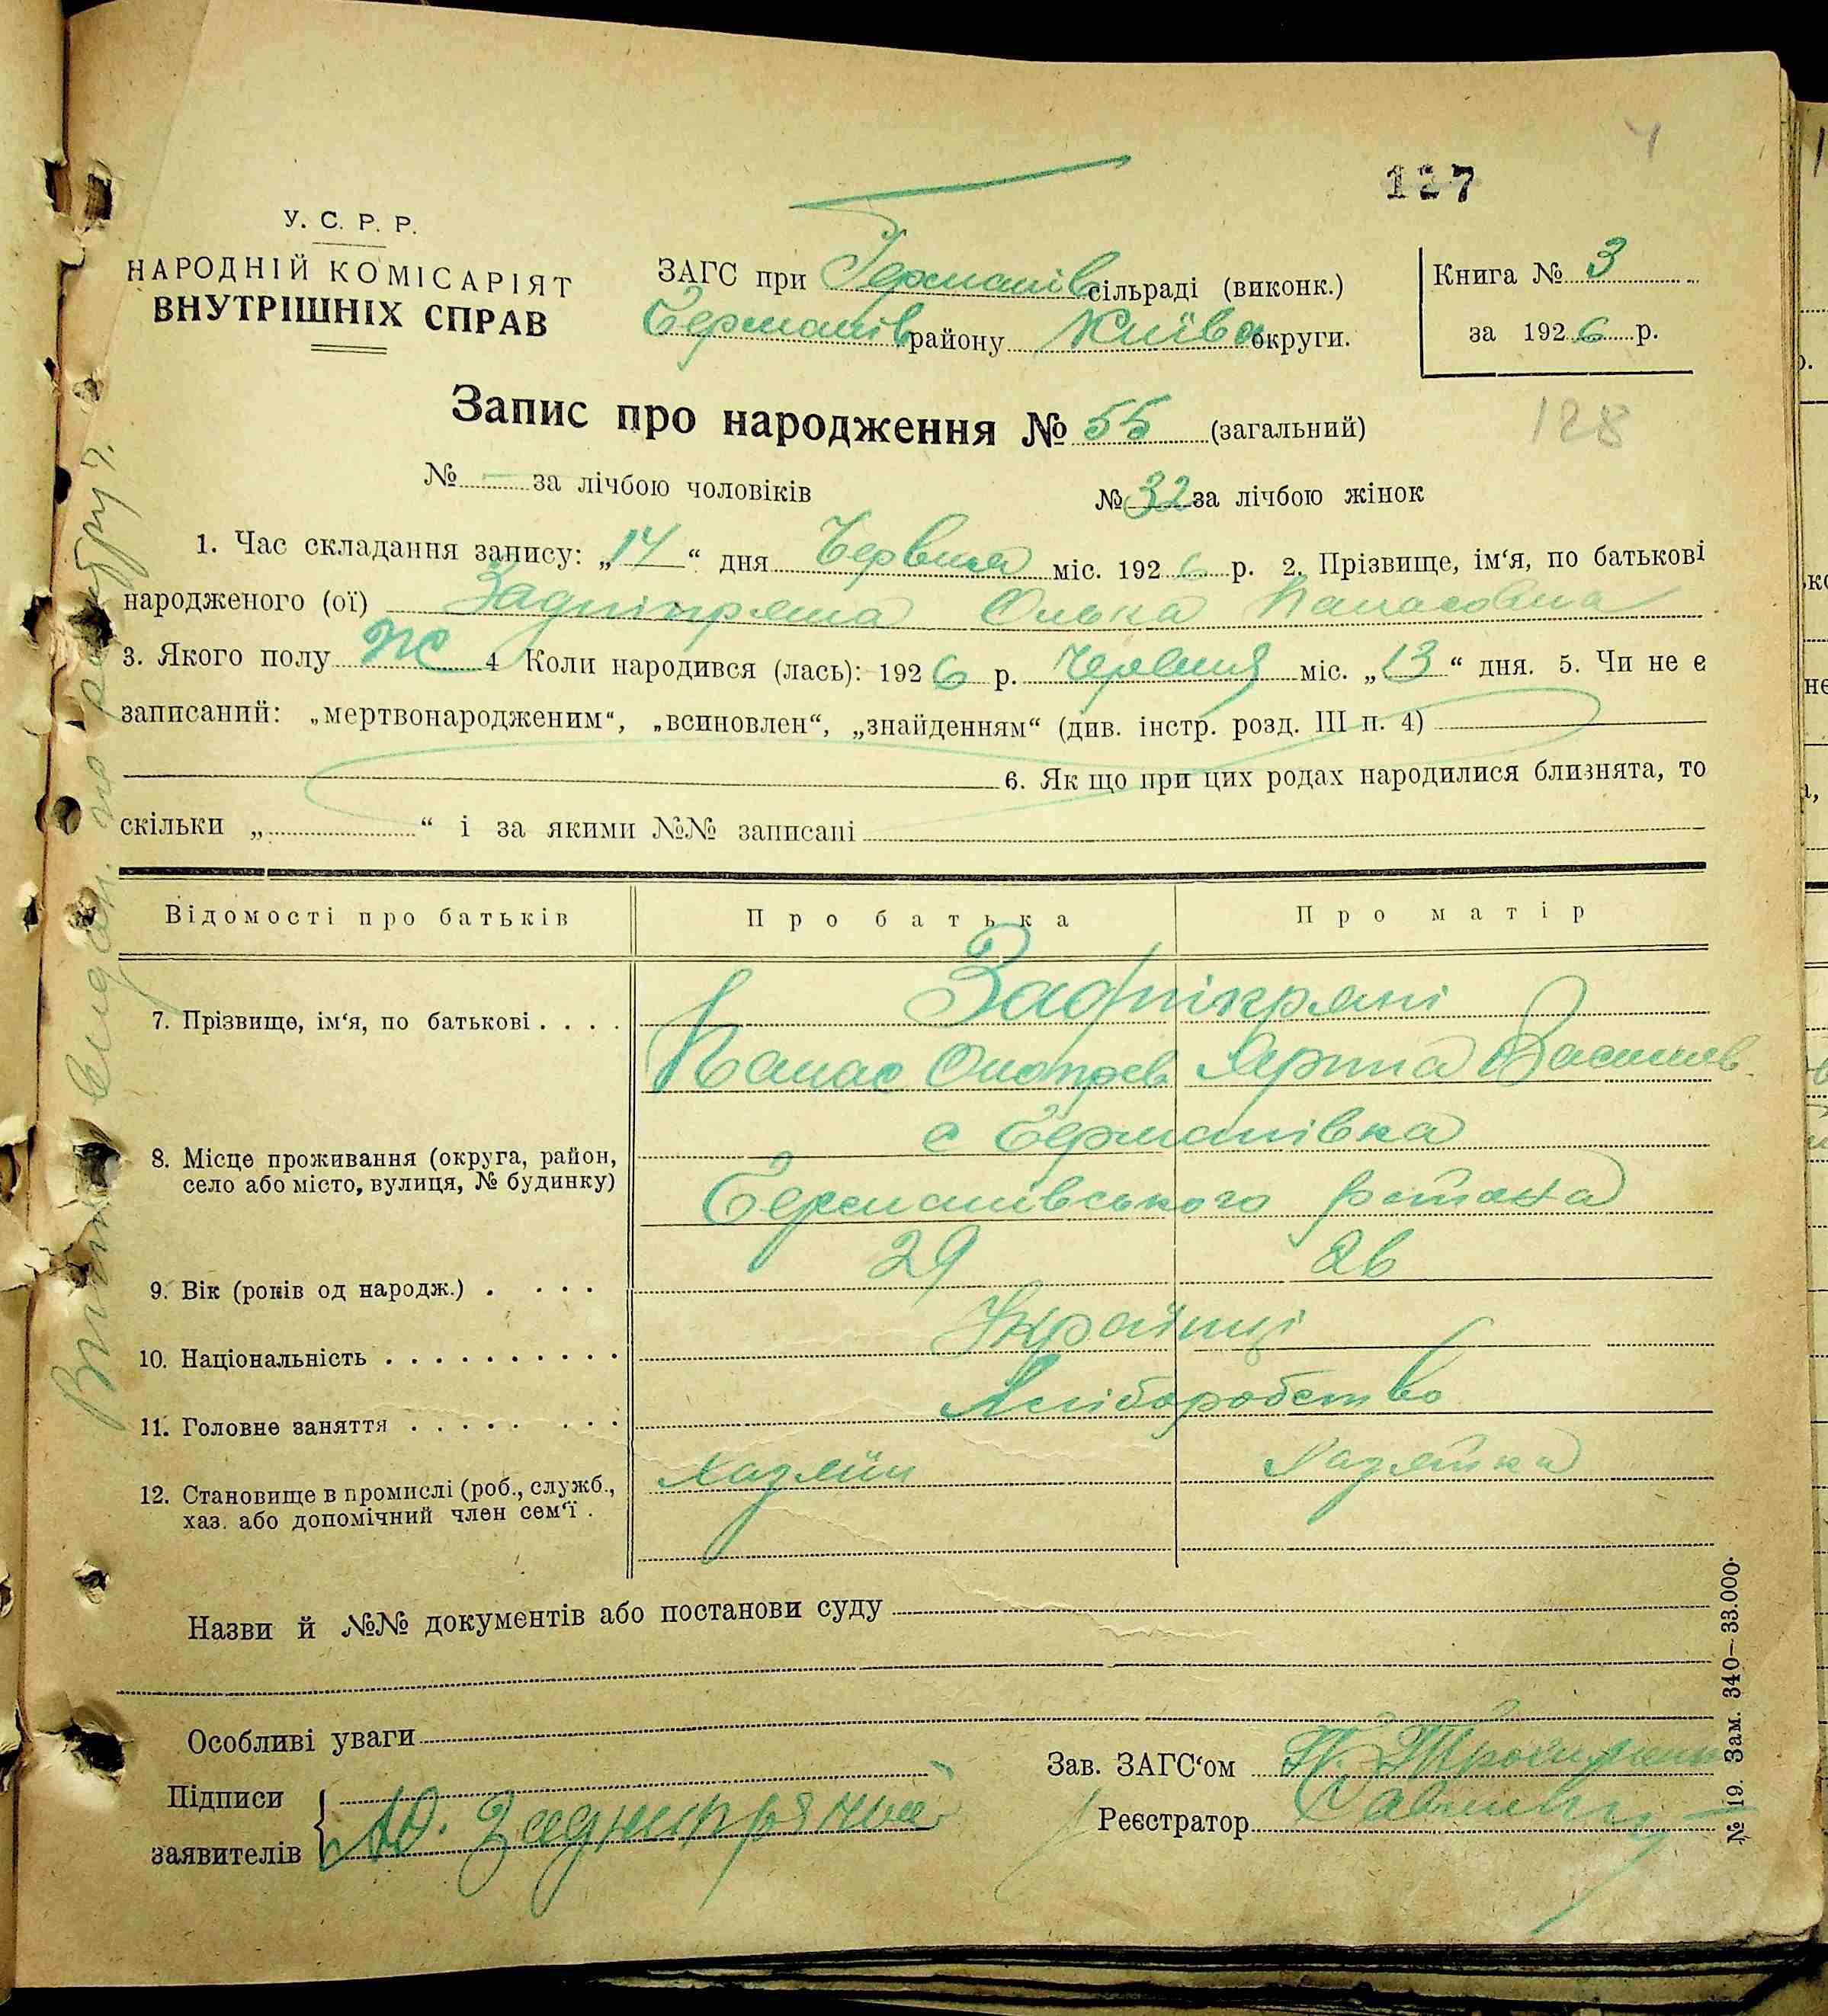 4
127
У. С. Р. Р.
НАРОДНІЙ КОМІСАРІЯТ
ВНУТРІШНІХ СПРАВ
ЗАГС при Германів сільраді (виконк.)
Германів району Київ округи.
Книга № 3
за 1926 р.
Запис про народження № 55 (загальний)
128
№ — за лічбою чоловіків № 32 за лічбою жінок
1. Час складання запису: „14“ дня Червня міс. 1926 р. 2. Прізвище, ім‘я, по батькові
народженого (ої) Задніпряна Олька Панасовна
3. Якого полу Ж 4 Коли народився (лась): 1926 р. Червня міс. „13“ дня. 5. Чи не є
записаний: „мертвонародженим“, „всиновлен“, „знайденням“ (див. інстр. розд. III п. 4)
6. Як що при цих родах народилися близнята, то
скільки „ “ і за якими №№ записані
Відомості про батьків Про батька Про матір
Задніпряні
7. Прізвище, ім‘я, по батькові . . . . Панас Онопрєв Ярина Василів
с Германівка
8. Місце проживання (округа, район,
село або місто, вулиця, № будинку)
Германівського
9. Вік (років од народж.) . . . . 29 26
10. Національність . . . . . . . . . . . Українці
11. Головне заняття . . . . . . . . Хліборобство
12. Становище в промислі (роб., служб., Хазяїн Хазяйка
хаз. або допомічний член сем‘ї .
Назви й №№ документів або постанови суду
Особливі уваги
Зав. ЗАГС‘ом
Підписи
заявителів
Ю. Заднипряний
Реєстратор
№ 19. Зам. 340—33.000.